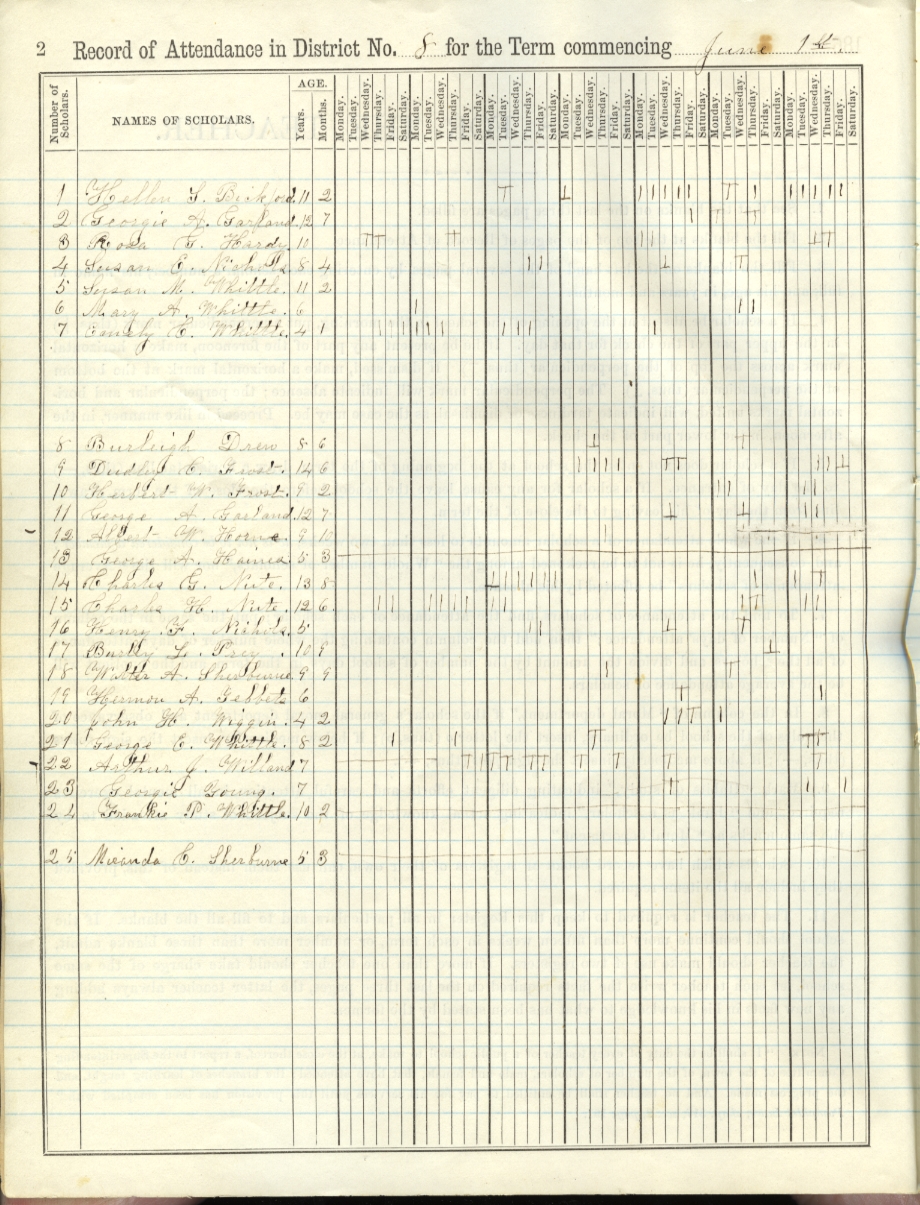 2 Record of Attendance in District No. 8 for the Term commencing June 1st.
Number of Scholars. NAMES OF SCHOLARS. AGE. Years. Months. Monday. Tuesday. Wednesday. Thursday. Friday. Saturday. Monday. Tuesday. Wednesday. Thursday. Friday. Saturday. Monday. Tuesday. Wednesday. Thursday. Friday. Saturday. Monday. Tuesday. Wednesday. Thursday. Friday. Saturday. Monday. Tuesday. Wednesday. Thursday. Friday. Saturday. Monday. Tuesday. Wednesday. Thursday. Friday. Saturday. Monday. Tuesday. Wednesday. Thursday. Friday. Saturday.
1 Hellen S. Bickford. 11 2
2 Georgie A. Garland. 12 7
3 Rosa G. Hardy. 10
4 Susan E. Nichols. 8 4
5 Susan M. Whittle. 11 2
6 Mary A. Whittle. 6
7 Whittle. 4 1
8 Burleigh Drew 8 6
9 Dudley C. Frost. 14 6
10 Herbert W. Frost. 9 2
11 George A. Garland. 12 7
12 Albert W. Horne. 9 10
13 George A. Haines. 5 3
14 Charles G. Nute. 13 8
15 Charles H. Nute. 12 6.
16 Henry F. Nichols. 5
17 L. 10 9
18 A. Sherburne. 9 9
19 Hermon A. 6
20 John H. Wiggin. 4 2
21 George E. Whittle. 8 2
22 Arthur J. Willand 7
23 Georgie Young. 7
24 Frankie P. Whittle. 10 2
25 Miranda E. Sherburne 5 3